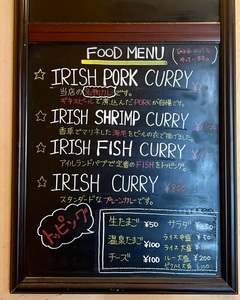 FOOD MENU
☆ IRISH PORK CURRY
当店の名物カレーです。
ギネスビールで煮込んだPORKが自慢です。
☆ IRISH SHRIMP CURRY
香草でマリネした海老をビールの衣で揚げました。
☆ IRISH FISH CURRY
アイルランドパブで定番のFISHをトッピング。
☆ IRISH CURRY ¥800
スタンダードなプレーンカレーです。
トッピング
生たまご ¥50
温泉たまご ¥100
チーズ ¥100
サラダ
ライス中盛 ¥50
ライス大盛 ¥100
ルー大盛 ¥200
ピクルス大盛